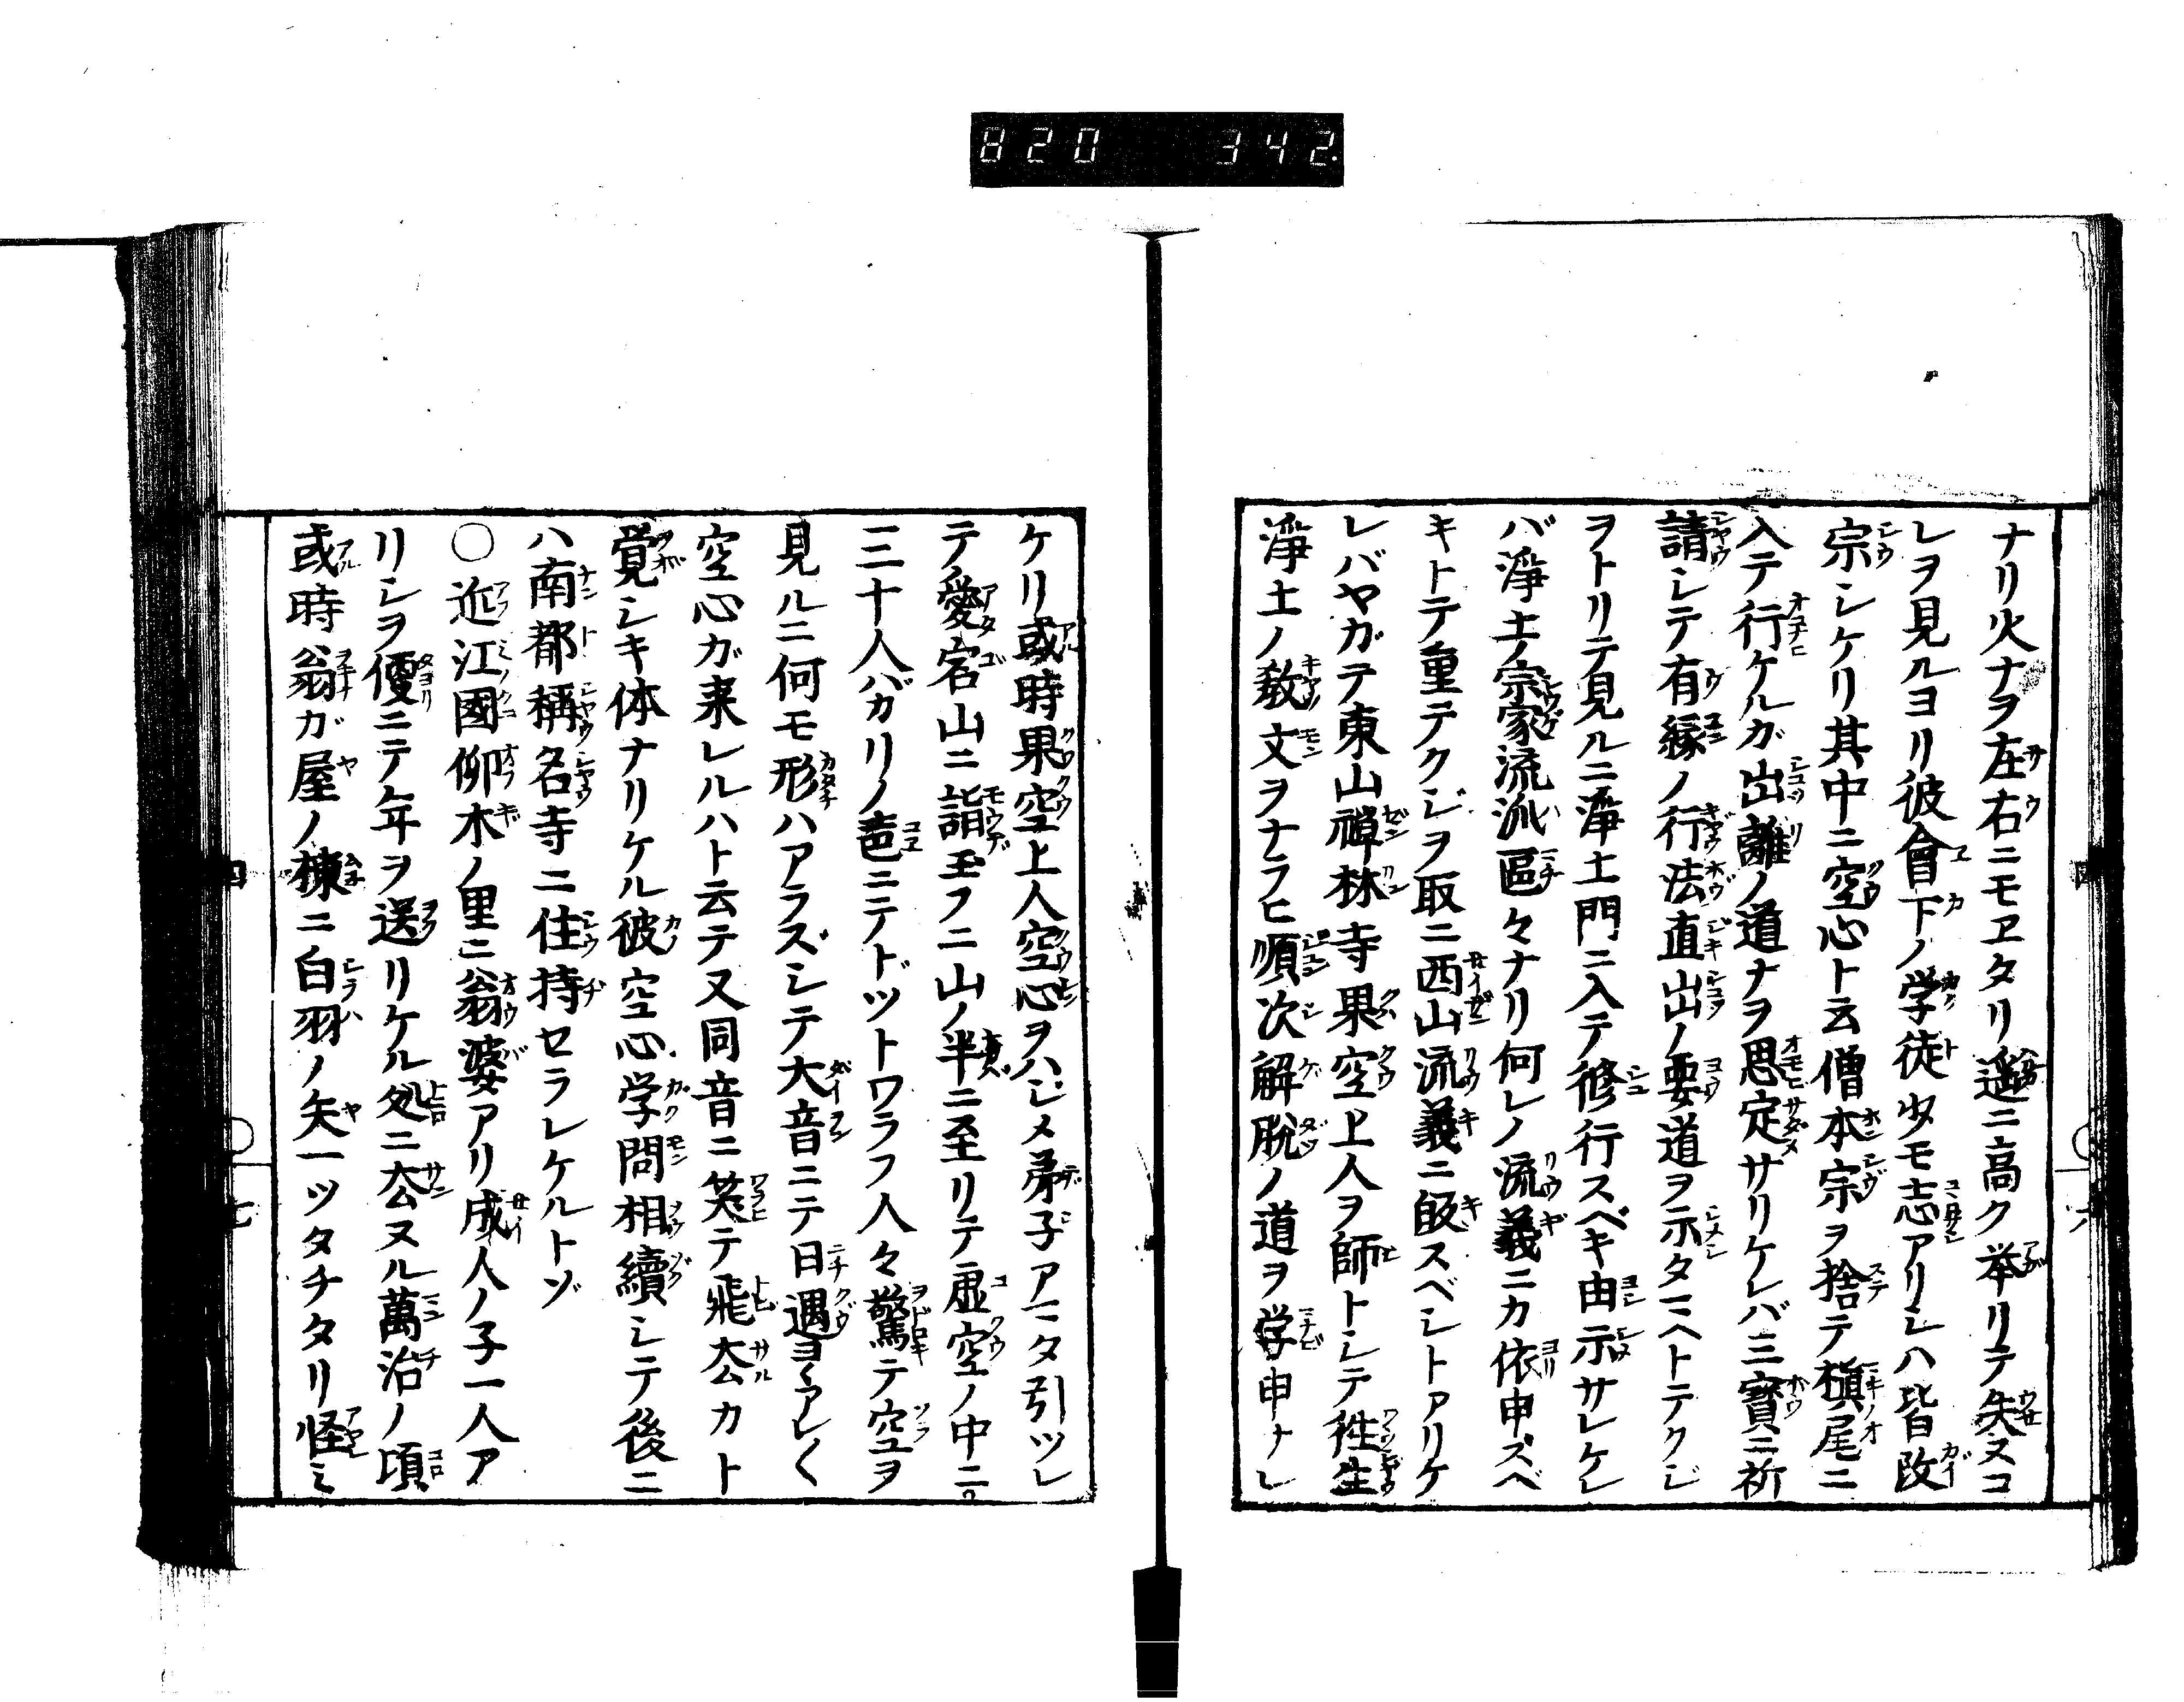 820 342.
ナリ火ナヲ左右ニモヱタリ遥ニ高ク挙リテ失ヌコ
レヲ見ルヨリ彼會下ノ学徒少モ志アリシハ皆改
宗シケリ其中ニ空心ト云僧本宗ヲ捨テ槇尾ニ
入テ行ケルガ出離ノ道ナヲ思定サリケレバ三寳ニ祈
請シテ有縁ノ行法直出ノ要道ヲ示タマヘトテクジ
ヲトリテ見ルニ淨土門ニ入テ修行スベキ由示サレケレ
バ淨土ノ宗家流派區々ナリ何レノ流義ニカ依申ズベ
キトテ重テクジヲ取ニ西山流義ニ皈スベシトアリケ
レバヤガテ東山禪林寺果空上人ヲ師トシテ徃生
淨土ノ教文ヲナラヒ順次解脱ノ道ヲ学申ナレ
四
六
ケリ或時果空上人空心ヲハジメ弟子アマタ引ツレ
テ愛宕山ニ詣玉フニ山ノ半ニ至リテ虚空ノ中ニ
二三十人バカリノ声ニテドツトワラフ人々驚テ空ヲ
見ルニ何モ形ハアラズシテ大音ニテ日遇ヨアレ〱
空心ガ来レルハト云テ又同音ニ笑テ飛去カト
覚シキ体ナリケル彼空心学問相續シテ後ニ
ハ南都稱名寺ニ住持セラレケルトゾ
○近江國仰木ノ里ニ翁婆アリ成人ノ子一人ア
リシヲ便ニテ年ヲ送リケル処ニ去ヌル萬治ノ頃
或時翁ガ屋ノ棟ニ白羽ノ矢一ツタチタリ怪ミ
四
七